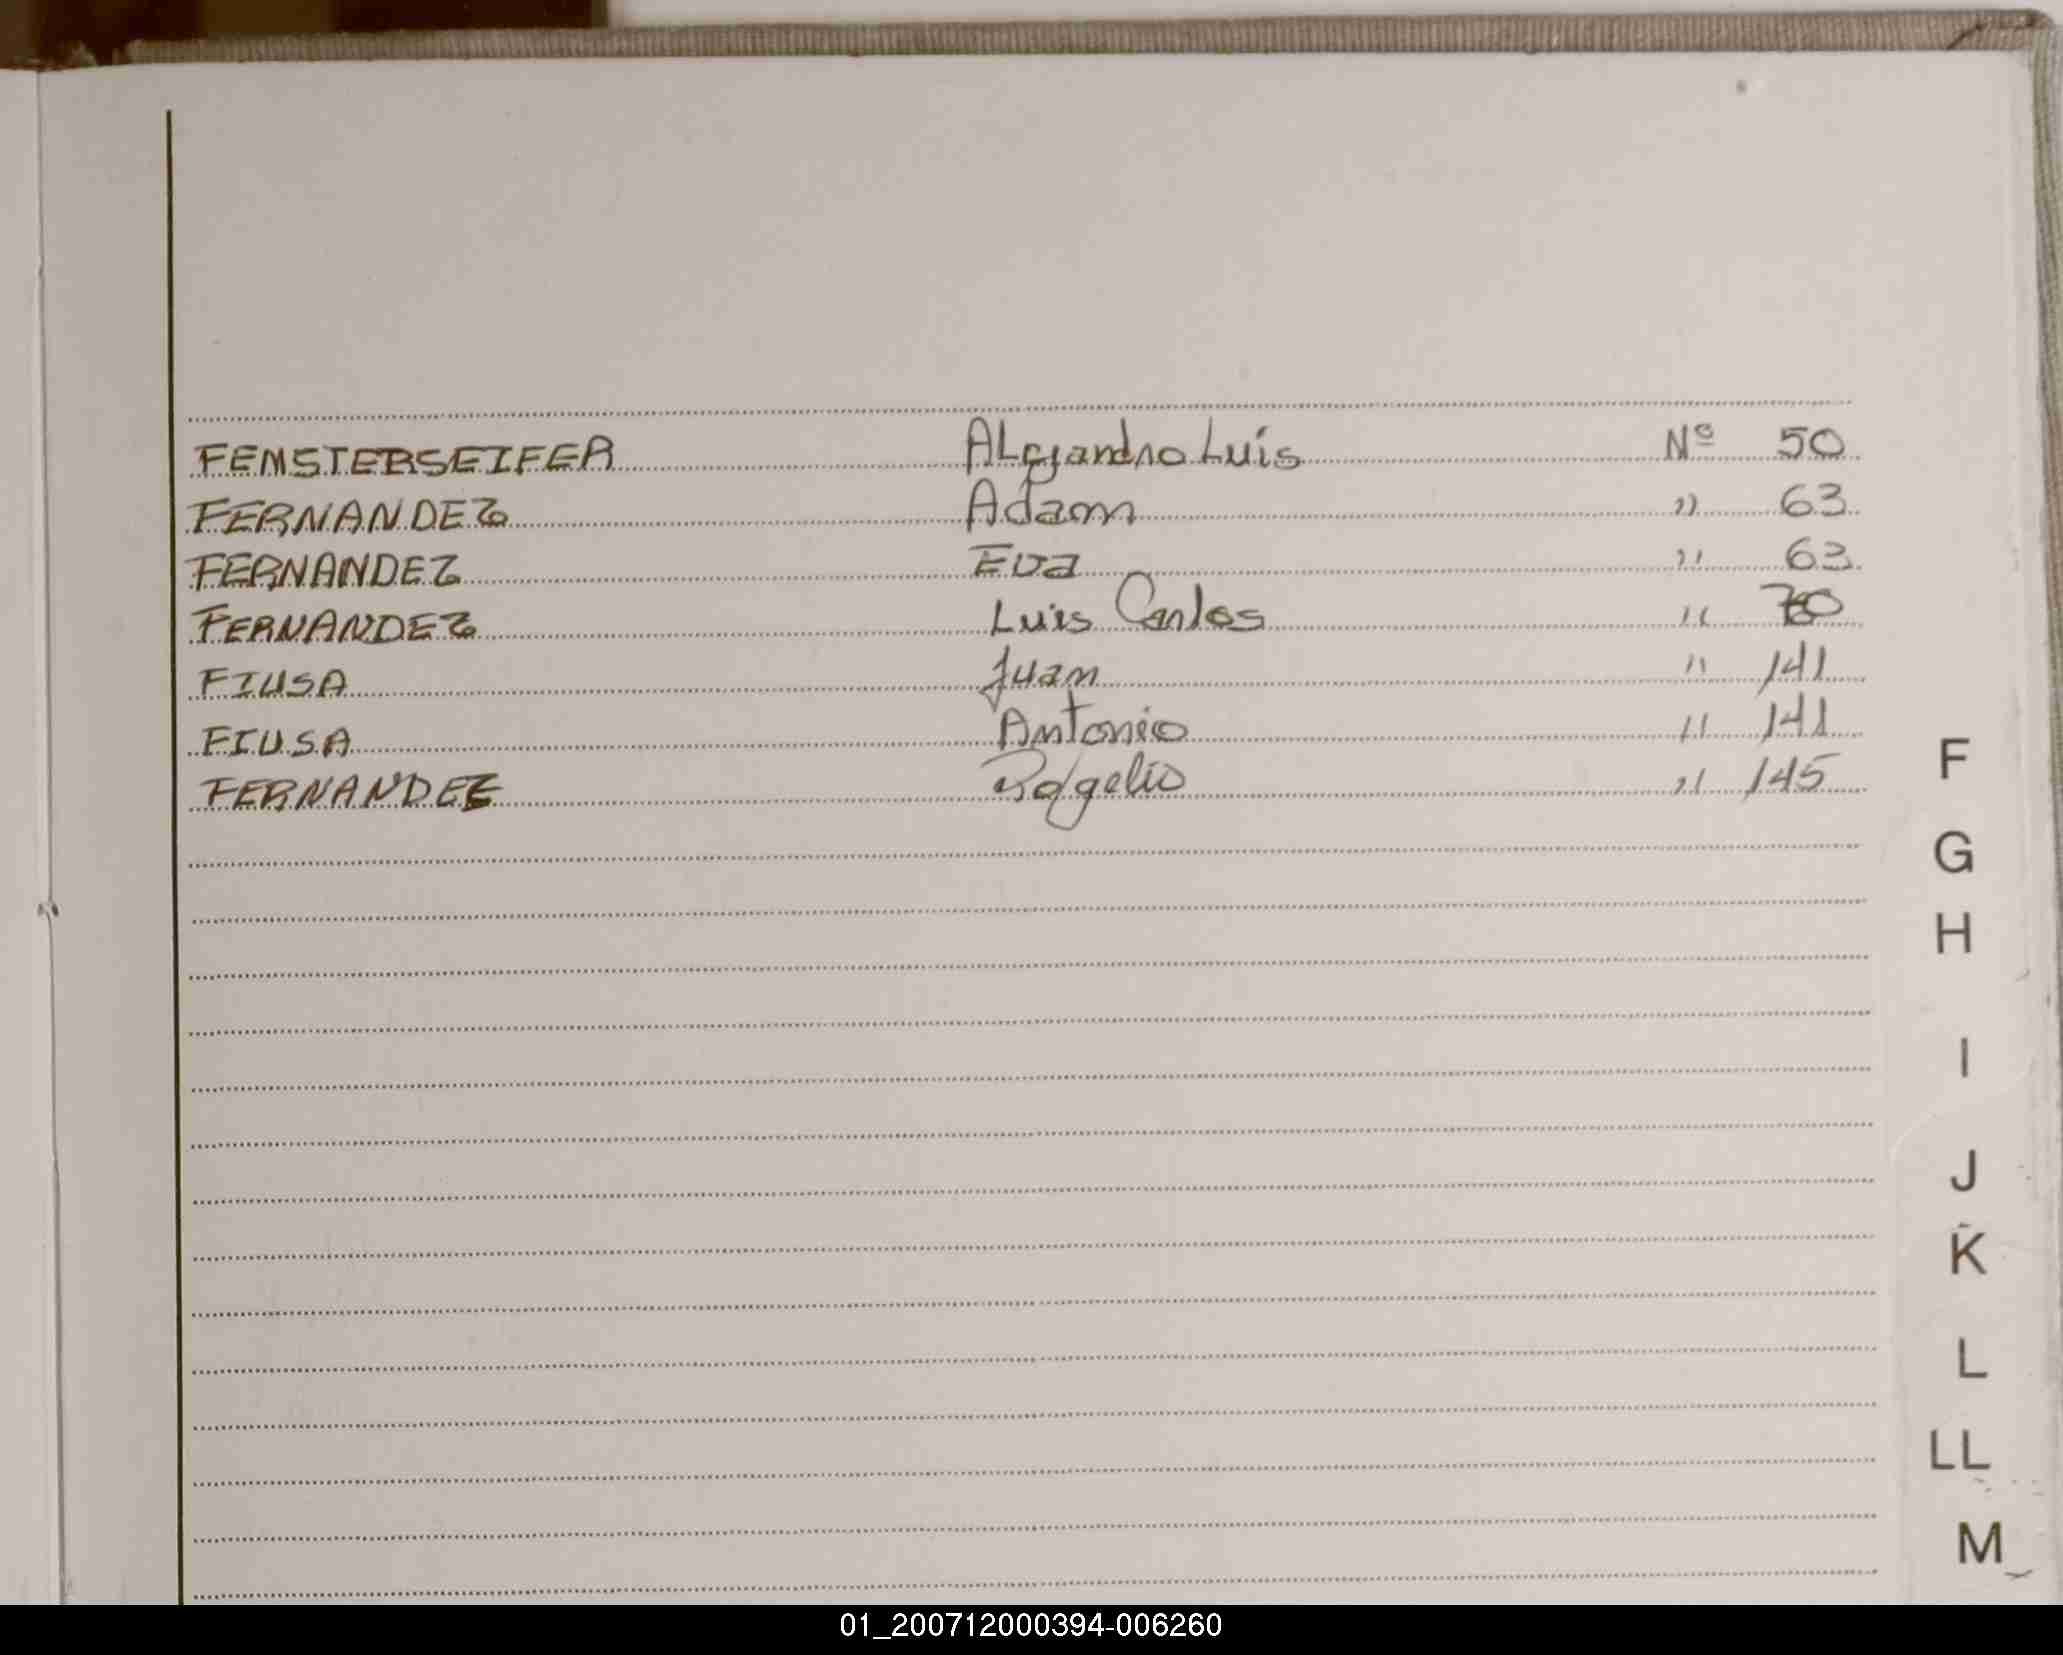 FENSTERSEIFER Alejandro Luis Nº 50
FERNANDEZ Adam " 63
FERNANDEZ Eva " 63
FERNANDEZ Luis Carlos "
FIUSA Juan " 141
FIUSA Antonio " 141
FERNANDEZ Rogelio " 145
F
G
H
I
J
K
L
LL
M
01_200712000394-006260